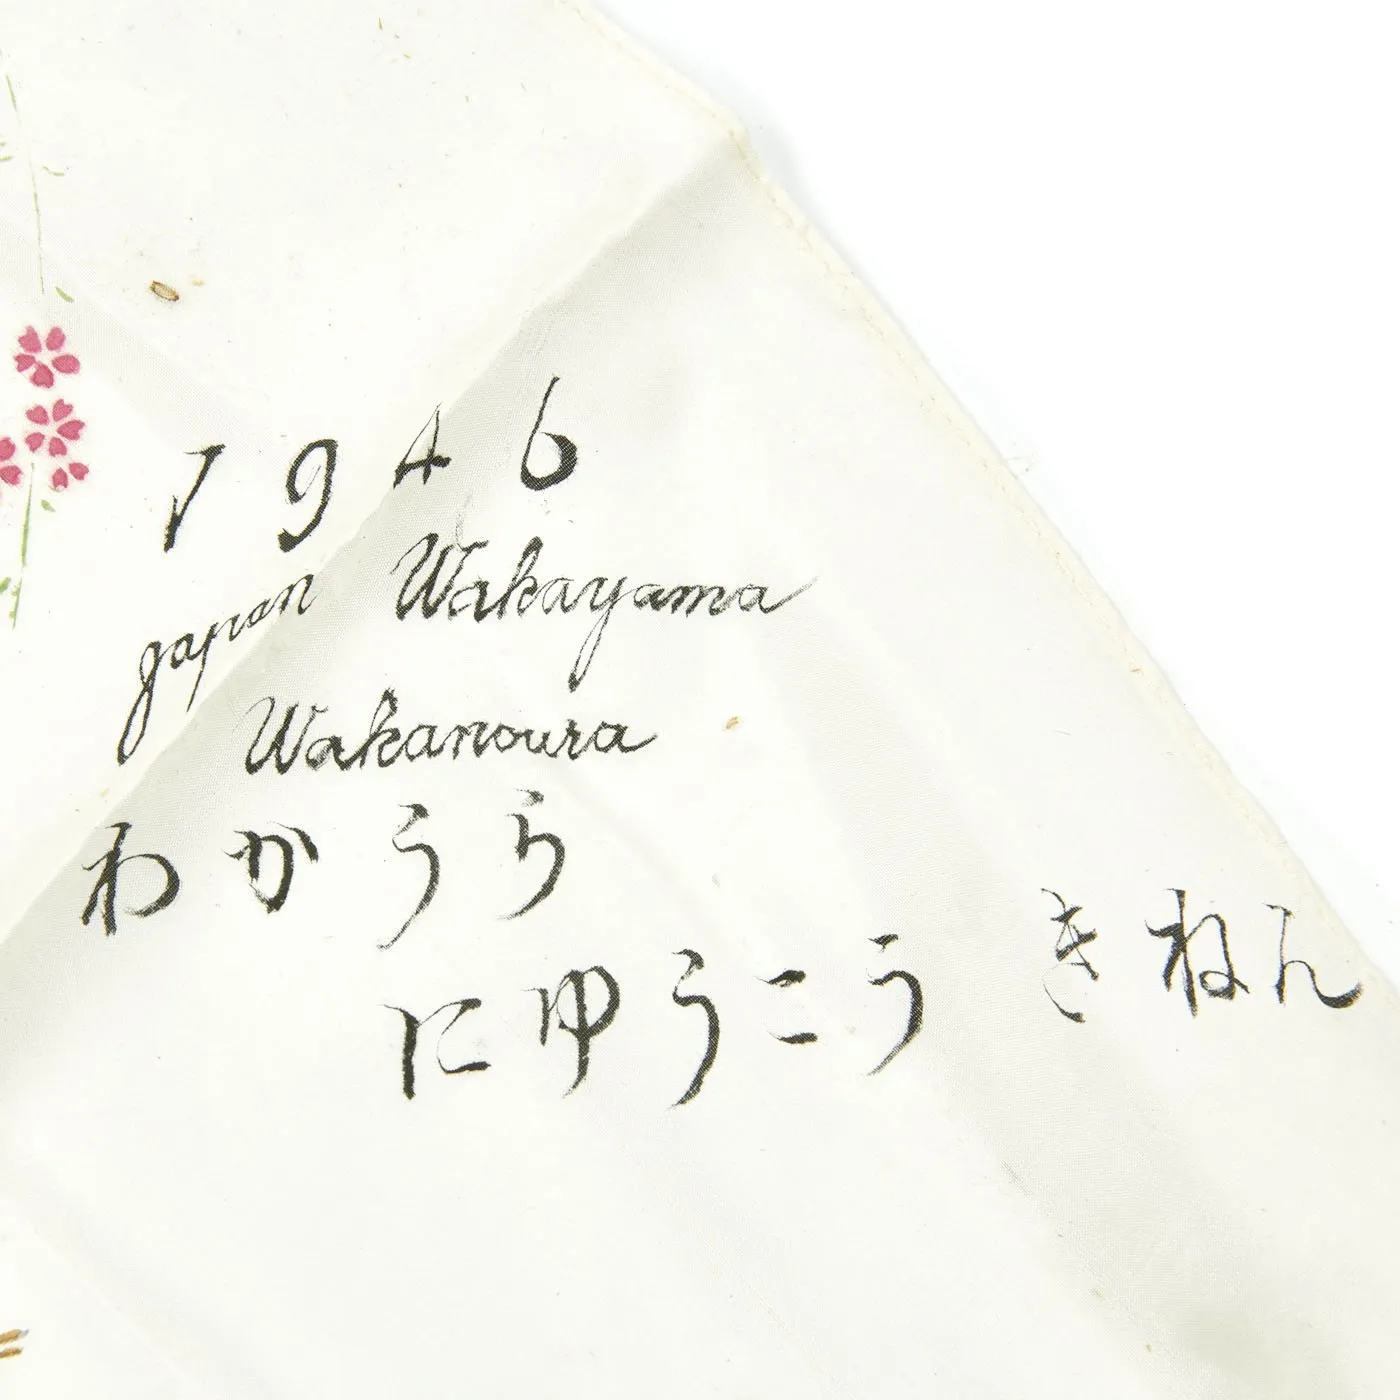 1946
Japan Wakayama
Wakanoura
わかうら
にゆうこう きねん